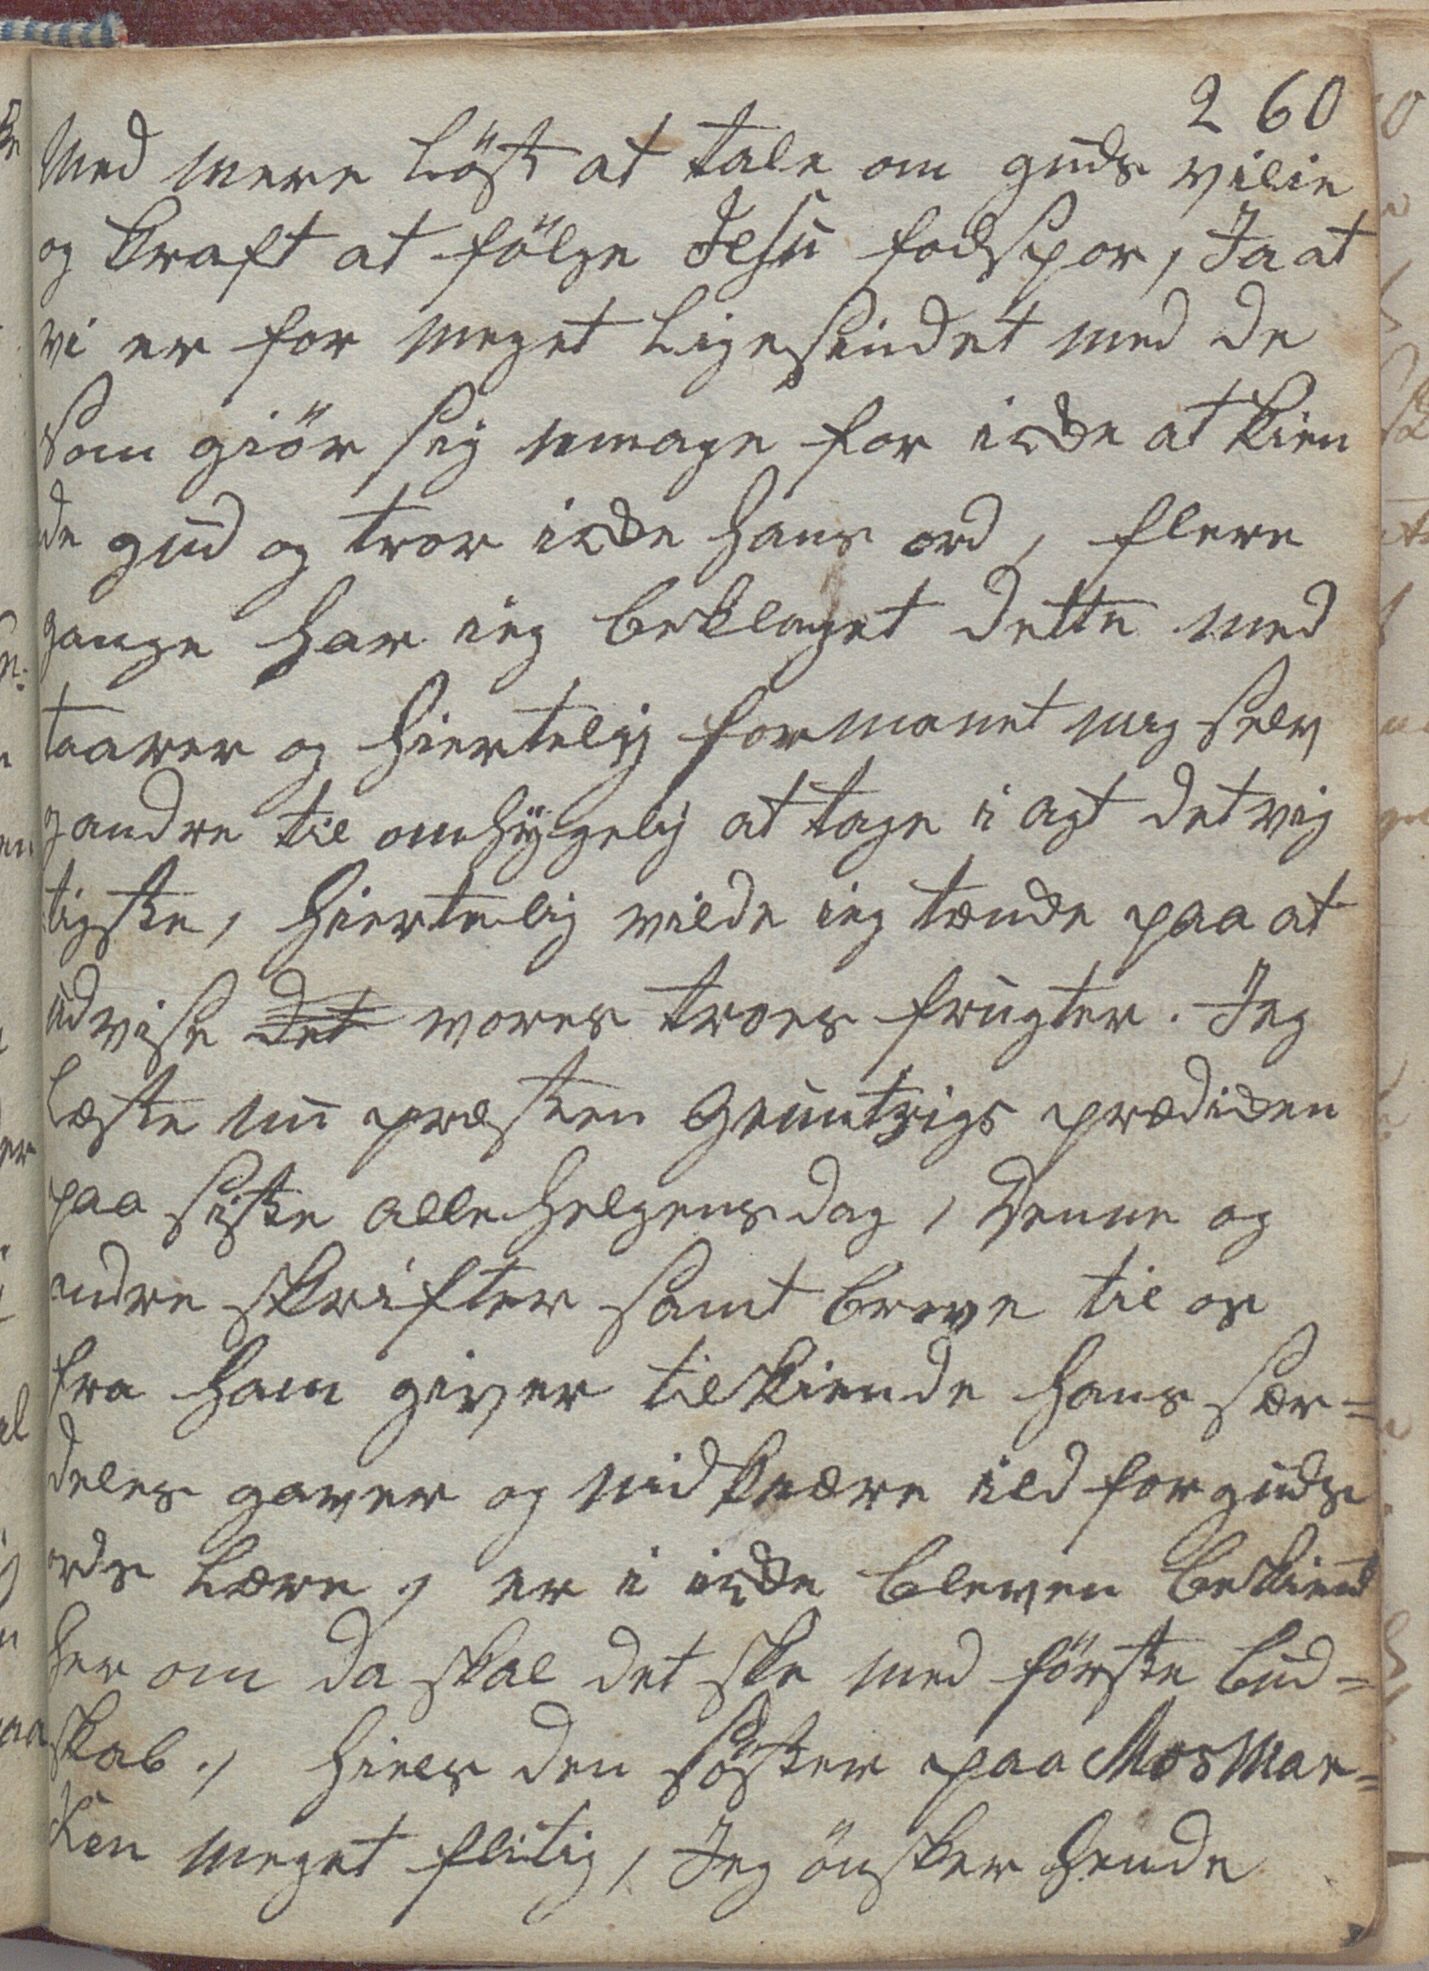 260
Med mere Löst at tale om guds vilie
og kraft at fölge Jesu fodspor, Ja at
vi er for meget Ligesindet med de
Som giör sig umage for icke at kien
de gud og tror icke hans ord, flere
gange har ieg beklaget dette med
taarer og hiertelig formanet mig selv
og andre til omhyggelig at tage i agt det vig
tigste, hiertelig vilde ieg tænke paa at
udvise det vores troes frugter. Jeg
Læste nu præsten Gruntvigs prædicken
paa siste alle helgens dag, Denne og
andre skrifter samt breve til os
fra ham giver tilkiende hans sær=
deles gaver og nidkiære ild for guds
ords Lære, er i icke bleven bekient
her om da skal det ske med förste bud=
skab., hiels den söster paa Mos Mar=
ken meget flitig, Jeg önsker hende